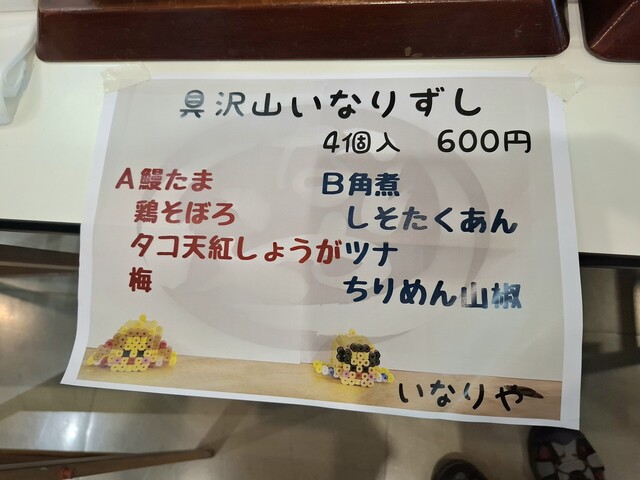 具沢山いなりずし
4個入 600円
A鰻たま
鶏そぼろ
タコ天紅しょうが
梅
B角煮
しそたくあん
ツナ
ちりめん山椒
いなりや